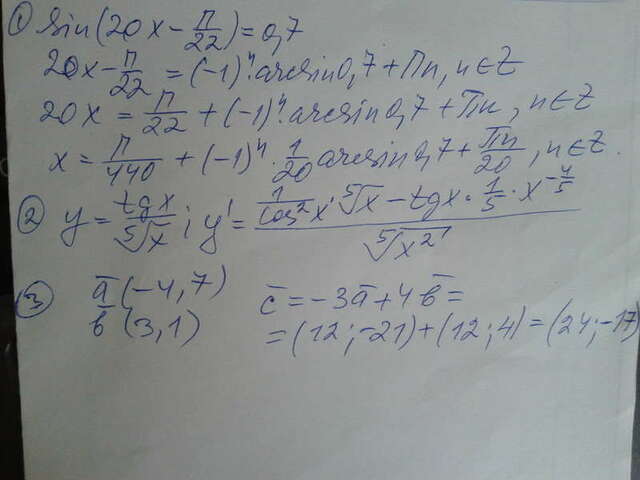 ① sin(20x - п/22) = 0,7
20x - п/22 = (-1)ⁿ·arcsin0,7 + Пn, n∈Z
20x = п/22 + (-1)ⁿ·arcsin0,7 + Пn, n∈Z
x = п/440 + (-1)ⁿ·1/20 arcsin0,7 + Пn/20, n∈Z.
② y = tgx/⁵√x; y' = (1/cos²x · ⁵√x - tgx·1/5·x^(-4/5))/⁵√x²
③ a̅(-4,7) c̅ = -3a̅ + 4b̅ =
b̅(3,1) = (12;-21) + (12;4) = (24;-17)